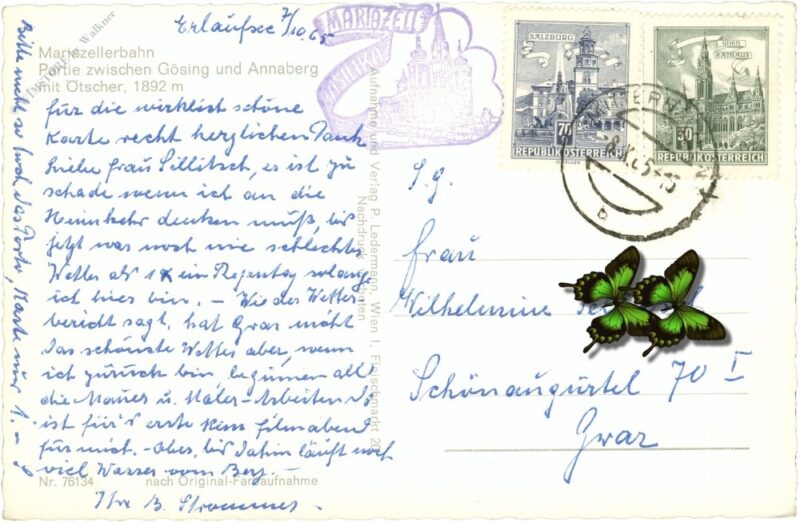 Erlaufsee 7/10.65
Mariazellerbahn
Partie zwischen Gösing und Annaberg
mit Ötscher, 1892 m
für die wirklich schöne
Karte recht herzlichen Dank
liebe Frau Sillitsch, es ist zu
schade wenn ich an die
Heimkehr denken muß, bis
jetzt war noch nie schlechtes
Wetter als 1x ein Regentag solang
ich hier bin. – Wie der Wetter-
bericht sagt, hat Graz nicht
das schönste Wetter aber, wenn
ich zurück bin, beginnen all
die Maurer u. Maler-Arbeiten da
ist für's erste kein Filmabend
für mich. – Aber, bis dahin läuft noch
viel Wasser vom Berg. –
Ihre B.
Nr. 76134 nach Original-Farbaufnahme
Bitte nicht so hoch das Porto, Karte nur 1.–
Walkner
Aufnahme und Verlag P. Ledermann, Wien I, Fleischmarkt 20
Nachdruck
MARIAZELL
BASILIKA
SALZBURG
70
REPUBLIK ÖSTERREICH
WIEN
RATHAUS
30
REPUBLIK ÖSTERREICH
b
S.g.
Frau
Wilhelmine
Schönaugürtel 70 I
Graz